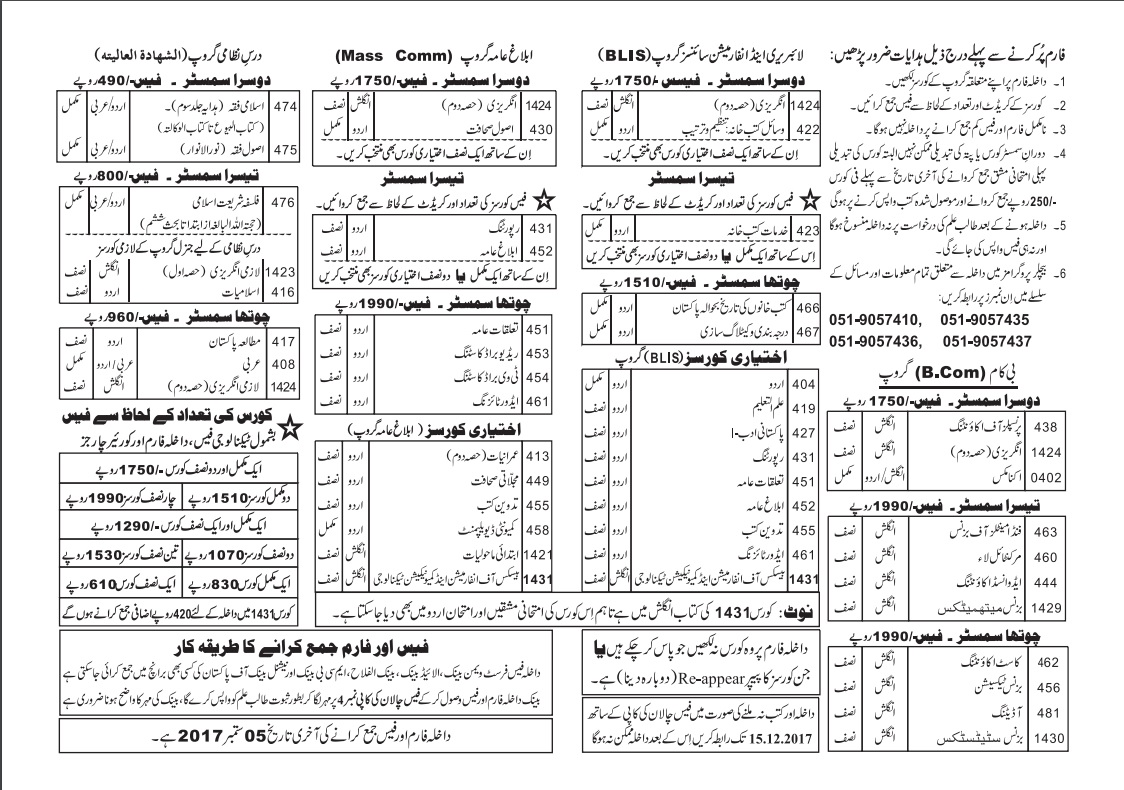 فارم پُر کرنے سے پہلے درج ذیل ہدایات ضرور پڑھیں:
1۔ داخلہ فارم پر اپنے متعلقہ گروپ کے کورسز لکھیں۔
2۔ کورسز کے کریڈٹ اور تعداد کے لحاظ سے فیس جمع کرائیں۔
3۔ نامکمل فارم اور فیس کم جمع کرانے پر داخلہ نہیں ہوگا۔
4۔ دوران سمسٹر کورس یا پتہ کی تبدیلی ممکن نہیں البتہ کورس کی تبدیلی
پہلی امتحانی مشق جمع کروانے کی آخری تاریخ سے پہلے فی کورس
250/- روپے جمع کروانے اور موصول شدہ کتب واپس کرنے پر ہوگی
5۔ داخلہ ہونے کے بعد طالب علم کی درخواست پر نہ داخلہ منسوخ ہوگا
اور نہ ہی فیس واپس کی جائے گی۔
6۔ بیچلر پروگرامز میں داخلہ سے متعلق تمام معلومات اور مسائل کے
سلسلے میں اِن نمبرز پر رابطہ کریں:
051-9057410, 051-9057435
051-9057436, 051-9057437
بی کام (B.Com) گروپ
دوسرا سمسٹر ۔ فیس/-1750 روپے
438 پرنسپلز آف اکاؤنٹنگ انگلش نصف
1424 انگریزی (حصہ دوم) انگلش نصف
0402 اکنامکس انگلش/اردو مکمل
تیسرا سمسٹر ۔ فیس/-1990 روپے
463 فنڈامینٹلز آف بزنس انگلش نصف
460 مرکنٹائل لاء انگلش نصف
444 ایڈوانسڈ اکاؤنٹنگ انگلش نصف
1429 بزنس میتھمیٹکس انگلش نصف
چوتھا سمسٹر ۔ فیس/-1990 روپے
462 کاسٹ اکاؤنٹنگ انگلش نصف
456 بزنس ٹیکسیشن انگلش نصف
481 آڈیٹنگ انگلش نصف
1430 بزنس سٹیٹسٹکس انگلش نصف
لائبریری اینڈ انفارمیشن سائنسز گروپ (BLIS)
دوسرا سمسٹر ۔ فیس /-1750 روپے
1424 انگریزی (حصہ دوم) انگلش نصف
422 وسائل کتب خانہ: تنظیم و ترتیب اردو مکمل
اِن کے ساتھ ایک نصف اختیاری کورس بھی منتخب کریں۔
تیسرا سمسٹر
فیس کورسز کی تعداد اور کریڈٹ کے لحاظ سے جمع کروائیں۔
423 خدمات کتب خانہ اردو مکمل
اِس کے ساتھ ایک مکمل یا دو نصف اختیاری کورسز بھی منتخب کریں
چوتھا سمسٹر ۔ فیس/-1510 روپے
466 کتب خانوں کی تاریخ بحوالہ پاکستان اردو مکمل
467 درجہ بندی و کیٹلاگ سازی اردو مکمل
اختیاری کورسز (BLIS) گروپ
404 اردو اردو مکمل
419 علم التعلیم اردو نصف
427 پاکستانی ادب-I اردو نصف
431 رپورٹنگ اردو نصف
451 تعلقات عامہ اردو نصف
452 ابلاغ عامہ اردو نصف
455 تدوین کتب اردو نصف
461 ایڈورٹائزنگ اردو نصف
1431 بیسکس آف انفارمیشن اینڈ کمیونیکیشن ٹیکنالوجی انگلش نصف
ابلاغ عامہ گروپ (Mass Comm)
دوسرا سمسٹر ۔ فیس/-1750 روپے
1424 انگریزی (حصہ دوم) انگلش نصف
430 اصول صحافت اردو مکمل
اِن کے ساتھ ایک نصف اختیاری کورس بھی منتخب کریں۔
تیسرا سمسٹر
فیس کورسز کی تعداد اور کریڈٹ کے لحاظ سے جمع کروائیں۔
431 رپورٹنگ اردو نصف
452 ابلاغ عامہ اردو نصف
اِن کے ساتھ ایک مکمل یا دو نصف اختیاری کورسز بھی منتخب کریں
چوتھا سمسٹر ۔ فیس/-1990 روپے
451 تعلقات عامہ اردو نصف
453 ریڈیو براڈ کاسٹنگ اردو نصف
454 ٹی وی براڈ کاسٹنگ اردو نصف
461 ایڈورٹائزنگ اردو نصف
اختیاری کورسز (ابلاغ عامہ گروپ)
413 عمرانیات (حصہ دوم) اردو نصف
449 مجلّاتی صحافت اردو نصف
455 تدوین کتب اردو نصف
458 کمیونٹی ڈویلپمنٹ اردو مکمل
1421 ابتدائی ماحولیات انگلش نصف
1431 بیسکس آف انفارمیشن اینڈ کمیونیکیشن ٹیکنالوجی انگلش نصف
نوٹ: کورس 1431 کی کتاب انگلش میں ہے تاہم اِس کورس کی امتحانی مشقیں اور امتحان اردو میں بھی دیا جا سکتا ہے۔
درس نظامی گروپ (الشهادة العاليته)
دوسرا سمسٹر ۔ فیس/-490 روپے
474 اسلامی فقہ (ہدایہ جلد سوم)۔ اردو/عربی مکمل
(کتاب البیوع تا کتاب الوکالتہ)
475 اصول فقہ (نور الانوار) اردو/عربی مکمل
تیسرا سمسٹر ۔ فیس/-800 روپے
476 فلسفہ شریعت اسلامی اردو/عربی مکمل
(حجتہ اللہ البالغہ از ابتدا تا بحث ششم)
درس نظامی کے لیے جنرل گروپ کے لازمی کورسز
1423 لازمی انگریزی (حصہ اول) انگلش نصف
416 اسلامیات اردو نصف
چوتھا سمسٹر ۔ فیس/-960 روپے
417 مطالعہ پاکستان اردو نصف
408 عربی عربی/اردو مکمل
1424 لازمی انگریزی (حصہ دوم) انگلش نصف
کورس کی تعداد کے لحاظ سے فیس
بشمول ٹیکنالوجی فیس، داخلہ فارم اور کوریئر چارجز
ایک مکمل اور دو نصف کورس /-1750 روپے
دو مکمل کورسز 1510 روپے چار نصف کورسز 1990 روپے
ایک مکمل اور ایک نصف کورس /-1290 روپے
دو نصف کورسز 1070 روپے تین نصف کورسز 1530 روپے
ایک مکمل کورس 830 روپے ایک نصف کورس 610 روپے
کورس 1431 میں داخلہ کے لئے 420 روپے اضافی جمع کرانے ہوں گے
داخلہ فارم پر وہ کورس نہ لکھیں جو پاس کر چکے ہیں یا
جن کورسز کا پیپر Re-appear (دوبارہ دینا) ہے۔
داخلہ اور کتب نہ ملنے کی صورت میں فیس چالان کی کاپی کے ساتھ
15.12.2017 تک رابطہ کریں اِس کے بعد داخلہ ممکن نہ ہوگا
فیس اور فارم جمع کرانے کا طریقہ کار
داخلہ فیس فرسٹ ویمن بینک، الائیڈ بینک، بینک الفلاح، ایم سی بی بینک اور نیشنل بینک آف پاکستان کی کسی بھی برانچ میں جمع کرائی جاسکتی ہے
بینک داخلہ فارم اور فیس وصول کر کے فیس چالان کی کاپی نمبر 4 پر مہر لگا کر بطور ثبوت طالب علم کو واپس کرے گا، بینک کی مہر کا واضح ہونا ضروری ہے
داخلہ فارم اور فیس جمع کرانے کی آخری تاریخ 05 ستمبر 2017 ہے۔